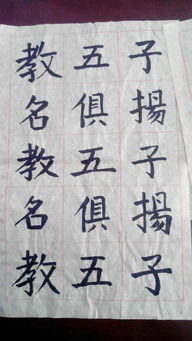 教五子
名俱揚
教五子
名俱揚
教五子